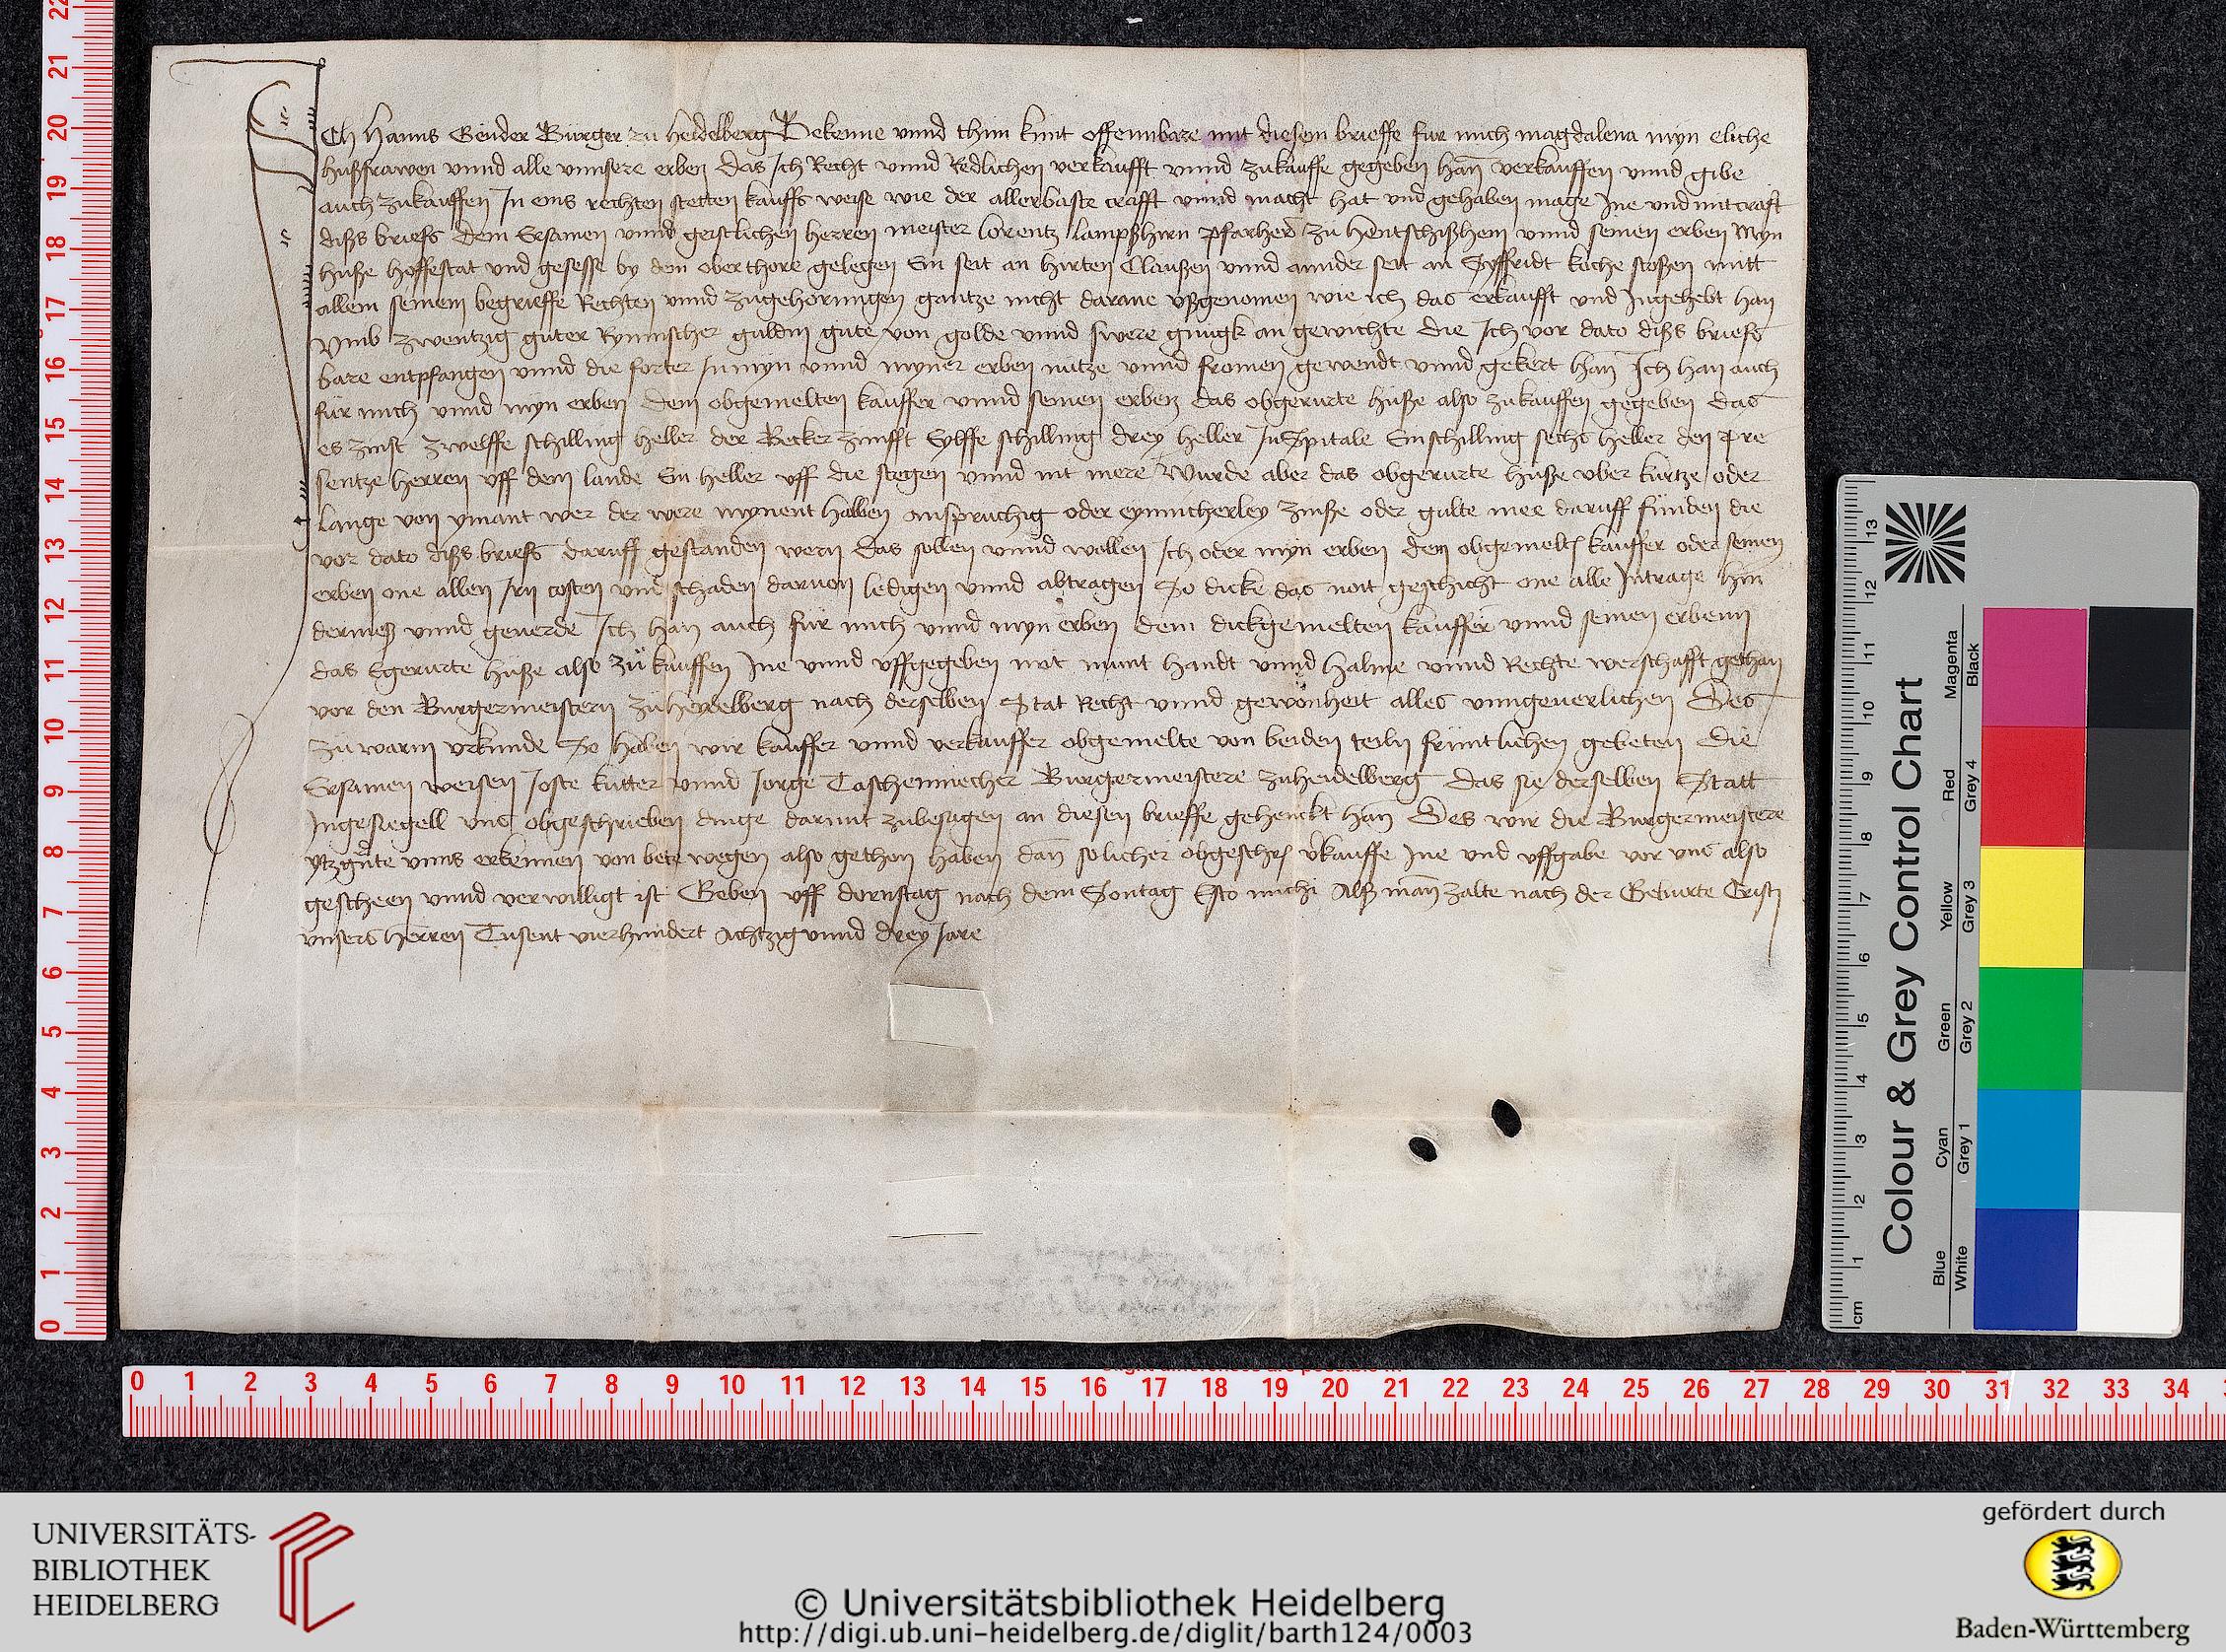 Ich Hanns Gender Burger zu Heidelberg Bekenne vnnd thun kunt offennbare mit diesem brieffe fur mich magdalena myn eliche
hußfrawen vnnd alle vnnsere erben Das Ich Recht vnnd Redlichen verkaufft vnnd zukauffe gegeben han verkauffen vnnd gibe
auch zukauffen In eins rechten stetten kauffs weise wie der allerbaste crafft vnnd macht hat vnd gehaben mage Ine vnd mit crafft
dißs briefs Dem Ersamen vnnd geistlichen herren meister lorentz lampßhirn pfarher zu Hentschißhem vnnd seinen erben Myn
huße hoffestat vnd gesesse by dem oberthore gelegen Ein seit an hirten Claußen vnnd annder seit an Syffridt koche stoßen mitt
allem seinem begrieffe Rechten vnnd zugehorungen gantze nicht darane vßgenomen wie ich das erkaufft vnd Ingehebt han
Vmb zwentzig guter Rynnischer guldin gute von golde vnnd swere gnugk an gewichte die Ich vor dato dißs briefs
bare entpfangen vnnd die forter In myn vnnd myner erben nutze vnnd fromen gewendt vnnd gekert han Ich han auch
fur mich vnnd myn erben Dem obgemelten kauffer vnnd seinen erben das obgerurte huße also zukauffen gegeben das
es zinst zwelffe schilling heller der Becker zunfft Eylffe schilling drey heller In Spitale Ein schilling sechs heller den pre
sentze herren vff dem lande Ein heller vff die stegen vnnd nit mere Wurde aber das obgerurte huße vber kurtze oder
lange von ymant wer der were mynent halben anspruchig oder eynnicherley zinße oder gulte mee daruff funden die
vor dato dißs briefs daruff gestanden wern das sollen vnnd wollen Ich oder myn erben dem obgemelten kauffer oder seinen
erben one allen Irn costen vnd schaden daruon ledigen vnnd abtragen So dicke das noit geschicht one alle Intrage hin
derniß vnnd geuerde Ich han auch fur mich vnnd myn erben dem dickgemelten kauffer vnnd seinen erbenn
das Egerurte huße also zu kauffen Ine vnnd vffgegeben mit munt handt vnnd halme vnnd Rechte werschafft gethan
vor den Burgermeistern zu Heydelberg nach derselben Stat Recht vnnd gewonheit alles vnngeuerlichen Des
zu warm vrkunde So haben wir kauffer vnnd verkauffer obgemelte von beiden teiln fruntlichen gebeten Die
Ersamen weisen Joste kutter vnnd Jorge Taschenmecher Burgermeistere zu heidelberg Das sie derselben Statt
Ingesiegell vns obgeschrieben dinge damit zubesagen an diesen brieffe gehenckt han Des wir die Burgermeistere
ytzgnte vnns erkennen von bete wegen also gethon haben dan solicher obgeschr vkauffe Ine vnd vffgabe vor vns also
gescheen vnnd verwilligt ist Geben vff dornstag nach dem Sontag Esto michi Alß man zalte nach der Geburte Cristi
vnsers herren Tusent vierhundert Achtzig vnnd drey Jare
Colour & Grey Control Chart
Magenta Black
Red Grey 4
Yellow Grey 3
Green Grey 2
Cyan Grey 1
Blue White
cm 1 2 3 4 5 6 7 8 9 10 11 12 13
22 21 20 19 18 17 16 15 14 13 12 11 10 9 8 7 6 5 4 3 2 1 0
0 1 2 3 4 5 6 7 8 9 10 11 12 13 14 15 16 17 18 19 20 21 22 23 24 25 26 27 28 29 30 31 32 33 34
UNIVERSITÄTS-
BIBLIOTHEK
HEIDELBERG
© Universitätsbibliothek Heidelberg
http://digi.ub.uni-heidelberg.de/diglit/barth124/0003
gefördert durch
Baden-Württemberg